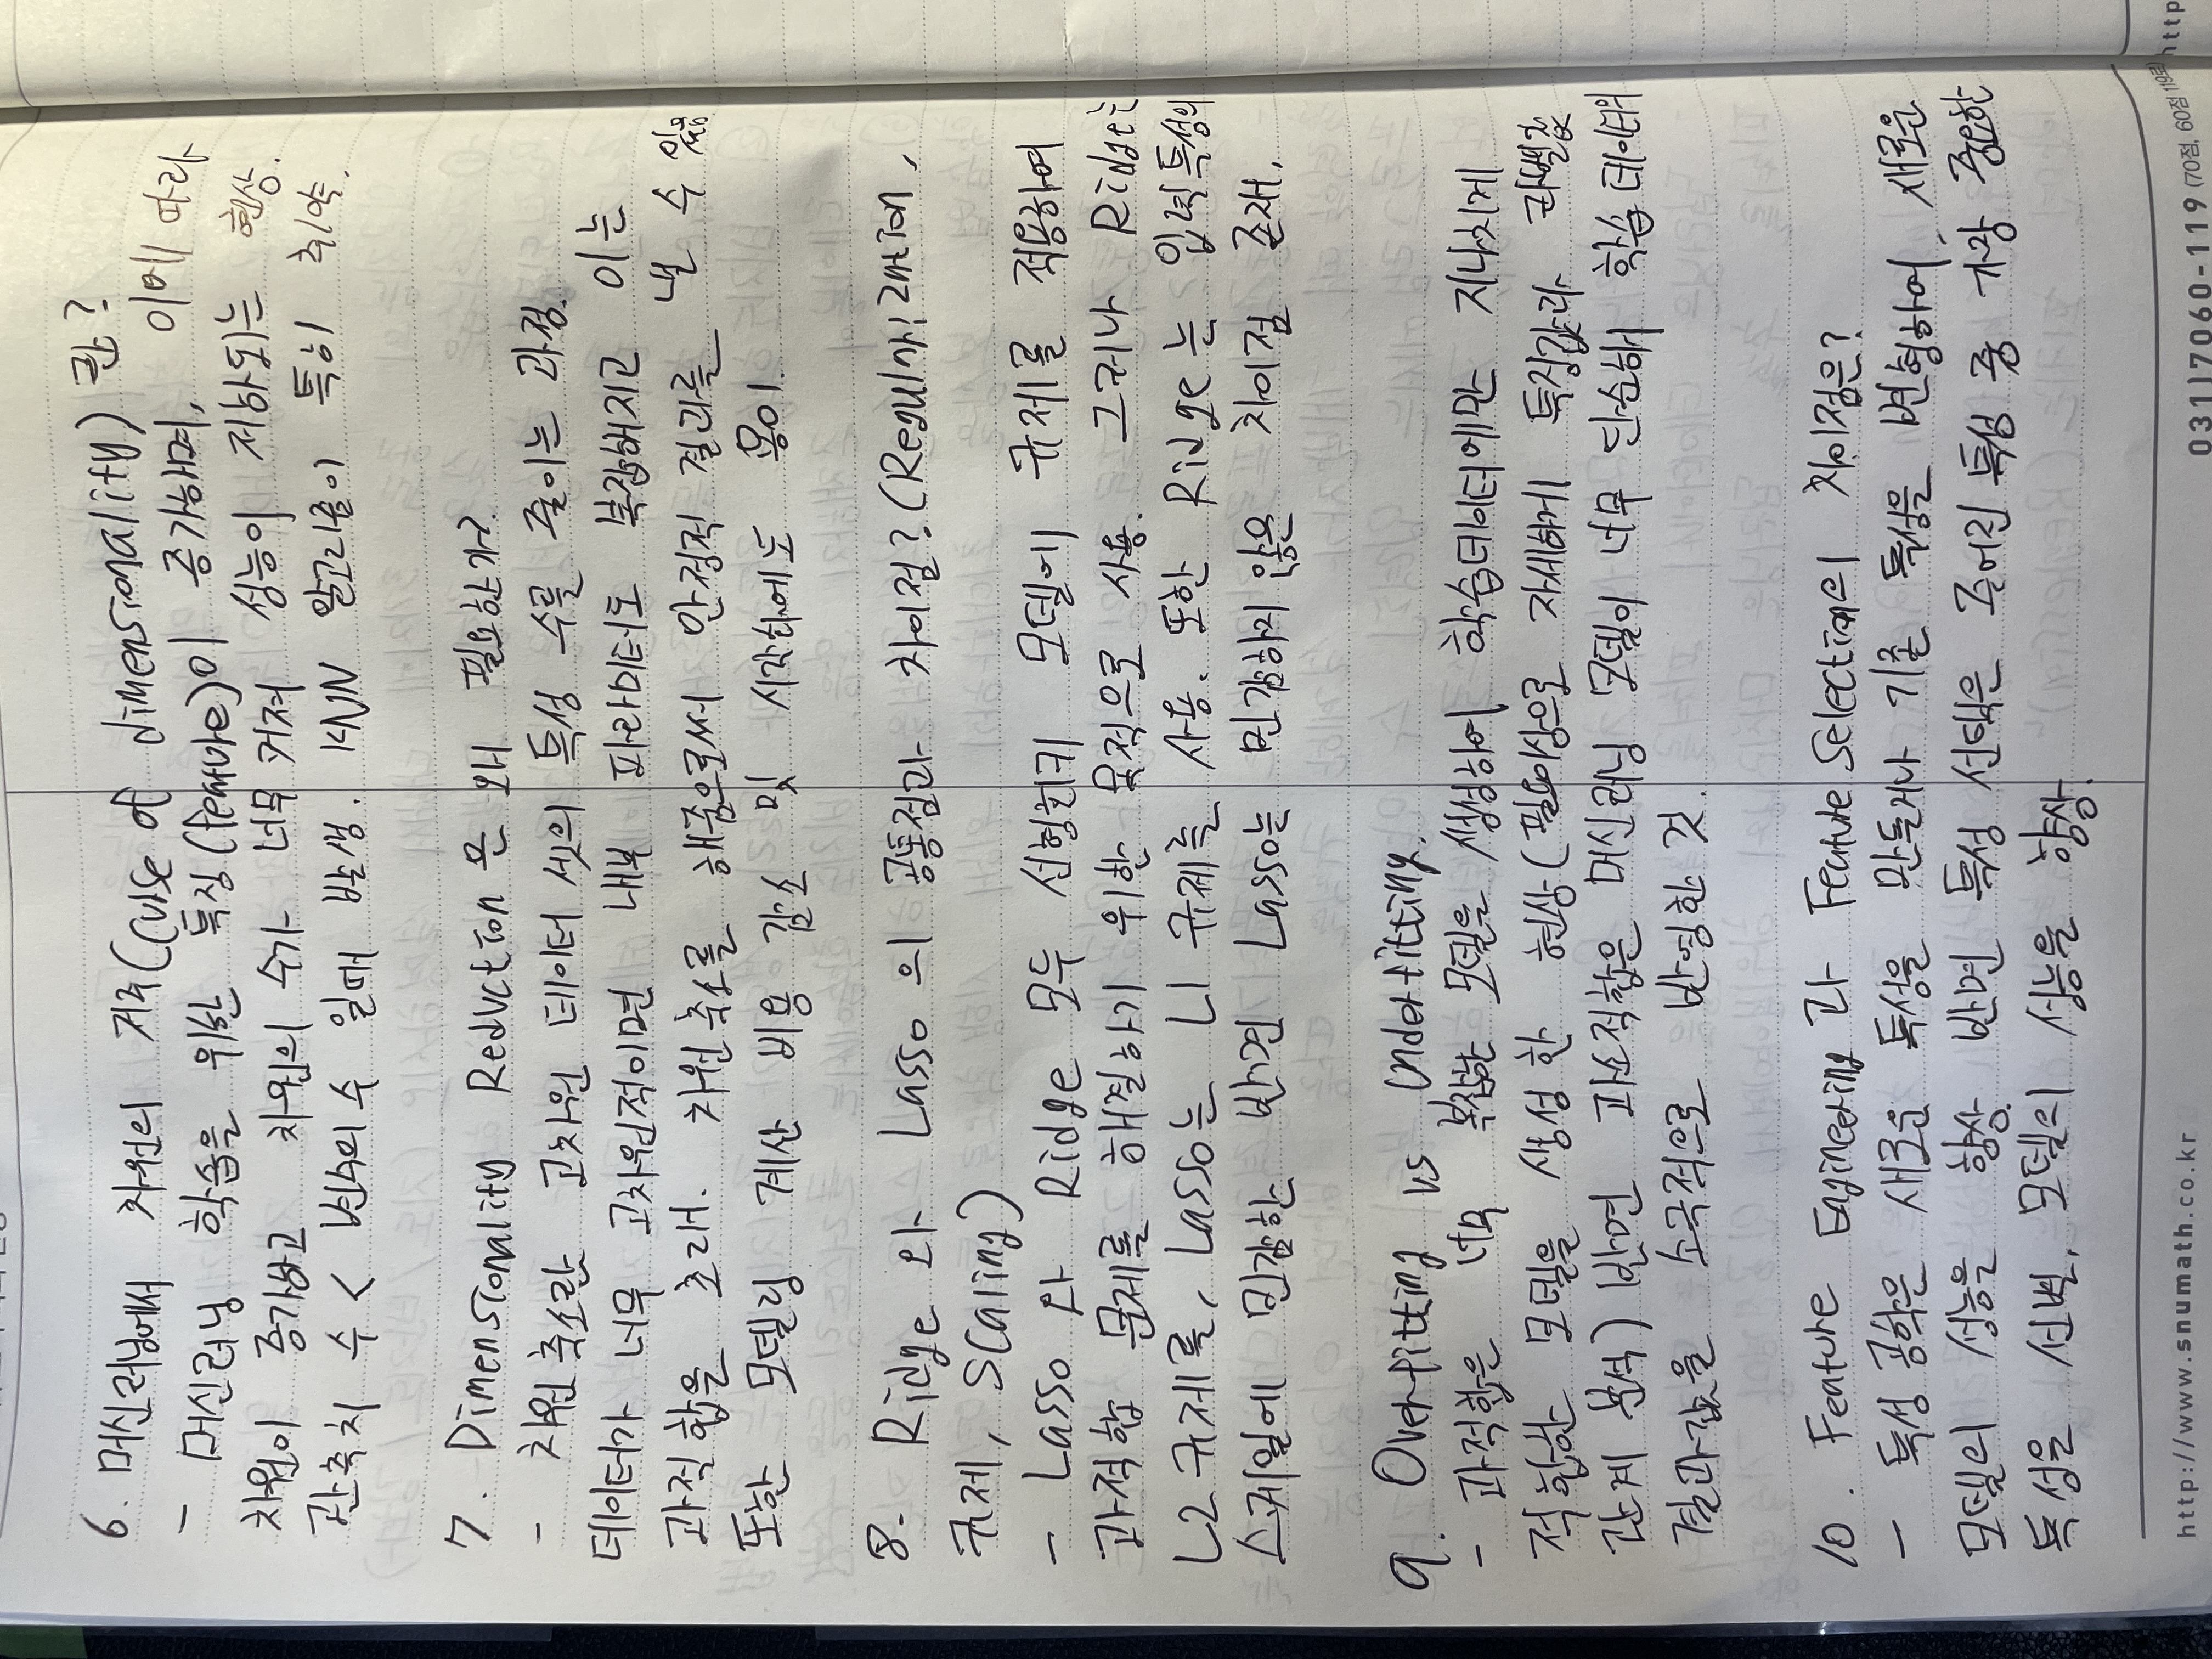 6. 머신러닝에서 차원의 저주(curse of dimensionality)란?
- 머신러닝 학습을 위한 특징(feature)이 증가하며, 이에 따라
차원이 증가하고 차원의 수가 너무 커져 성능이 저하되는 현상.
관측치 수 < 변수의 수 일때 발생. KNN 알고리즘이 특히 취약.
7. Dimensionality Reduction 은 왜 필요한가?
- 차원 축소란 고차원 데이터 셋의 특성 수를 줄이는 과정.
데이터가 너무 고차원적이면 내부 파라미터도 복잡해지고 이는
과적합을 초래. 차원 축소를 해줌으로써 안정적 결과를 낼 수 있음
또한 모델링 계산 비용 감소 및 시각화에도 용이.
8. Ridge 와 Lasso 의 공통점과 차이점? (Regularization,
규제, Scaling)
- Lasso 와 Ridge 모두 선형회귀 모델에 규제를 적용하여
과적합 문제를 해결하기 위한 목적으로 사용. 그러나 Ridge는
L2 규제를, Lasso는 L1 규제를 사용. 또한 Ridge는 입력 특성의
스케일에 민감한 반면 Lasso는 민감하지 않은 차이점 존재.
9. Overfitting vs Underfitting.
- 과적합은 너무 복잡한 모델을 생성하여 학습데이터에만 지나치게
적합한 모델을 생성한 현상(필요이상으로 자세하게 특징값과 라벨값
관계 분석) 반면 과소적합은 머신러닝 모델이 너무 단순해 학습 데이터의
결과값을 소극적으로 반영한 것.
10. Feature Engineering 과 Feature Selection의 차이점은?
- 특성 공학은 새로운 특성을 만들거나 기존 특성을 변형하여, 새로운
모델의 성능을 향상. 반면 특성 선택은 주어진 특성 중 가장 중요한
특성을 선별, 모델의 성능을 향상.
http://www.snumath.co.kr
031)7060-119 (70점, 60점 119로)
http